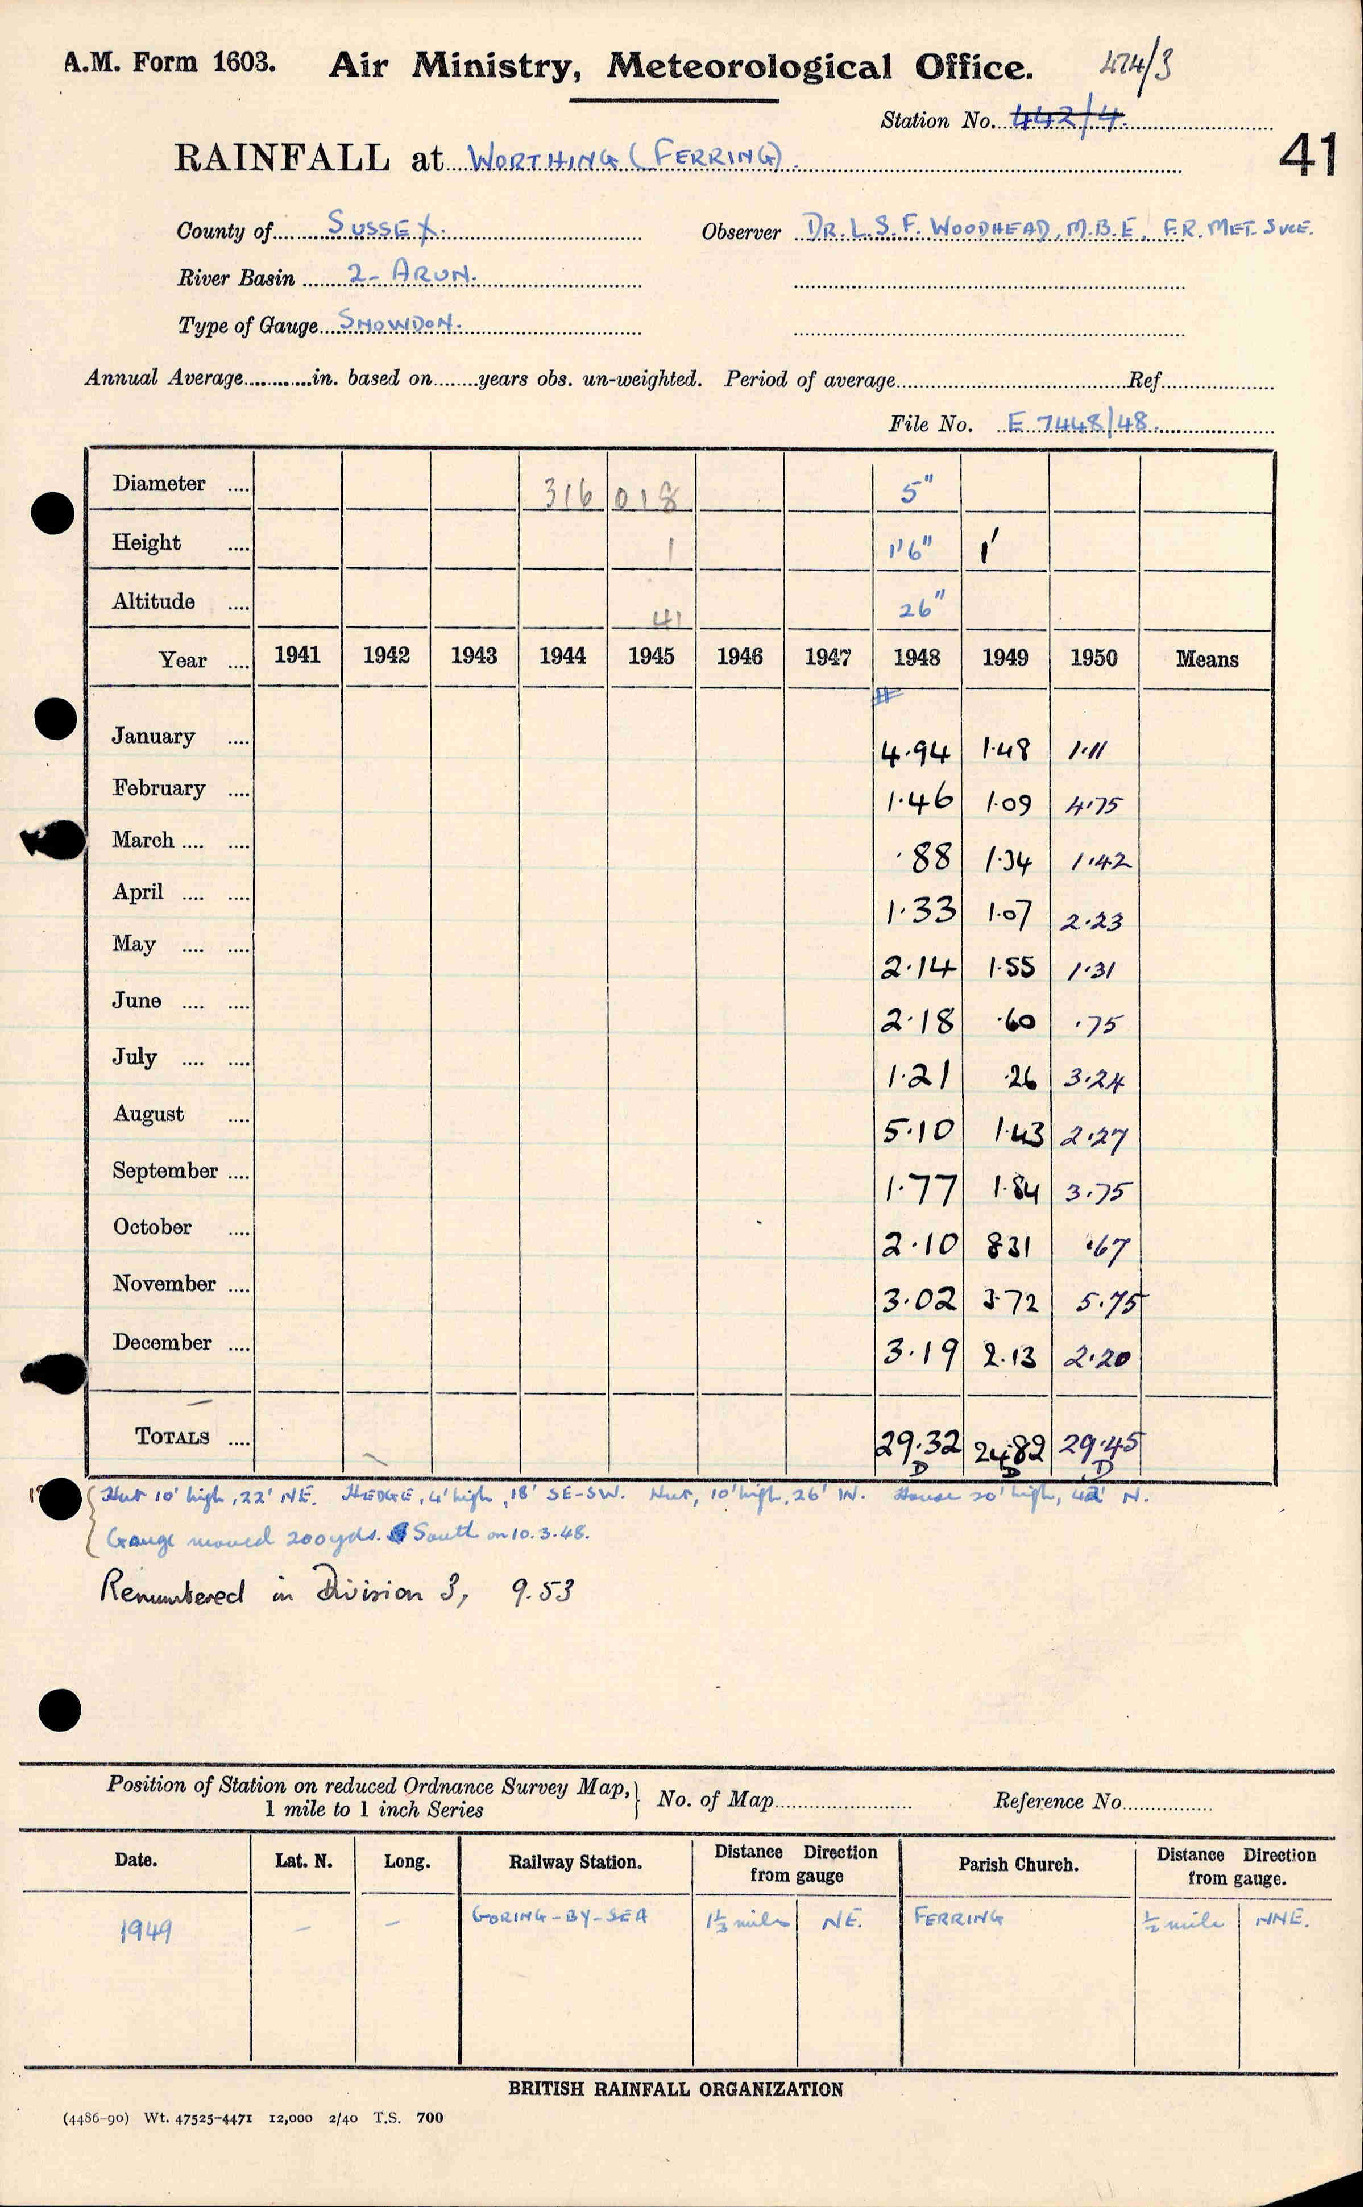 A.M. Form 1603. Air Ministry, Meteorological Office. 474/3
Station No. 442/4.
RAINFALL at WORTHING (FERRING). 41
County of SUSSEX. Observer DR. L. S. F. WOODHEAD, M.B.E, F.R. MET. SOC.
River Basin 2- ARUN.
Type of Gauge SNOWDON.
Annual Average in. based on years obs. un-weighted. Period of average Ref.
File No. E 7448/48.
Diameter .... 316 018 5"
Height .... 1 1'6" 1'
Altitude .... 41 26"
Year .... 1941 1942 1943 1944 1945 1946 1947 1948 1949 1950 Means
#
January .... 4.94 1.48 1.11
February .... 1.46 1.09 4.75
March .... .... .88 1.34 1.42
April .... .... 1.33 1.07 2.23
May .... .... 2.14 1.55 1.31
June .... .... 2.18 .60 .75
July .... .... 1.21 .26 3.24
August .... 5.10 1.43 2.27
September .... 1.77 1.84 3.75
October .... 2.10 8.31 .67
November .... 3.02 3.72 5.75
December .... 3.19 2.13 2.20
TOTALS .... 29.32 24.82 29.45
D D D
Hut 10' high, 22' NE. HEDGE, 4' high, 18' SE-SW. Hut, 10' high, 26' W. House 20' high, 42' N.
Gauge moved 200yds. South on 10.3.48.
Renumbered in Division 3, 9.53
Position of Station on reduced Ordnance Survey Map, 1 mile to 1 inch Series } No. of Map Reference No.
Date. Lat. N. Long. Railway Station. Distance Direction from gauge Parish Church. Distance Direction from gauge.
1949 – – GORING-BY-SEA 1⅓ miles NE. FERRING ½ mile NNE.
BRITISH RAINFALL ORGANIZATION
(4486-90) Wt. 47525-4471 12,000 2/40 T.S. 700